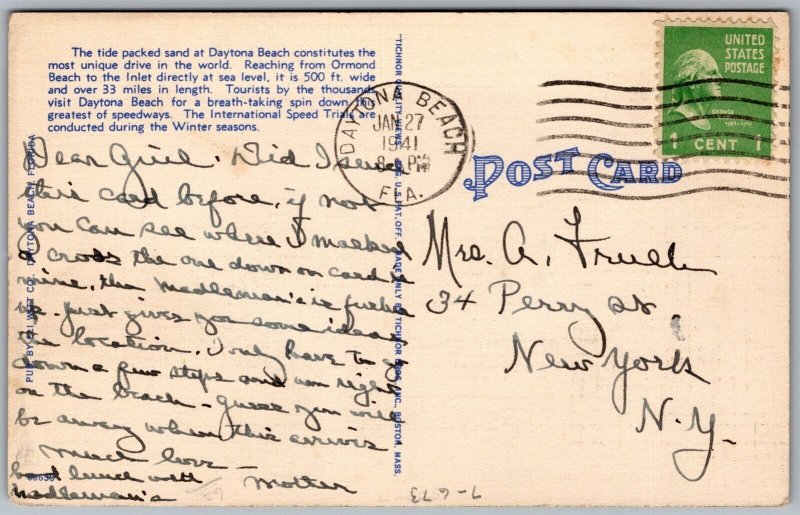 The tide packed sand at Daytona Beach constitutes the
most unique drive in the world. Reaching from Ormond
Beach to the Inlet directly at sea level, it is 500 ft. wide
and over 33 miles in length. Tourists by the thousands
visit Daytona Beach for a breath-taking spin down the
greatest of speedways. The International Speed Trials are
conducted during the Winter seasons.
Dear Girl. Did I send
this card before, if not
you can see where I marked
a cross the one down on card is
mine, the Madleman's is further
just gives you some idea
location. I only have to go
down a few steps and am right
on the beach - guess you will
be away when this arrives
Much love -
Mother
had lunch with
Madleman's
DAYTONA BEACH
JAN 27
1941
8 PM
FLA.
UNITED
STATES
POSTAGE
1 CENT 1
POST CARD
Mrs. A. Truell
34 Perry St
New York
N.Y.
7-673